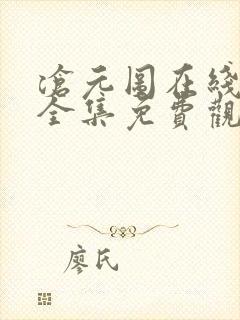 滄元圖在綫
全集免費觀
廖氏